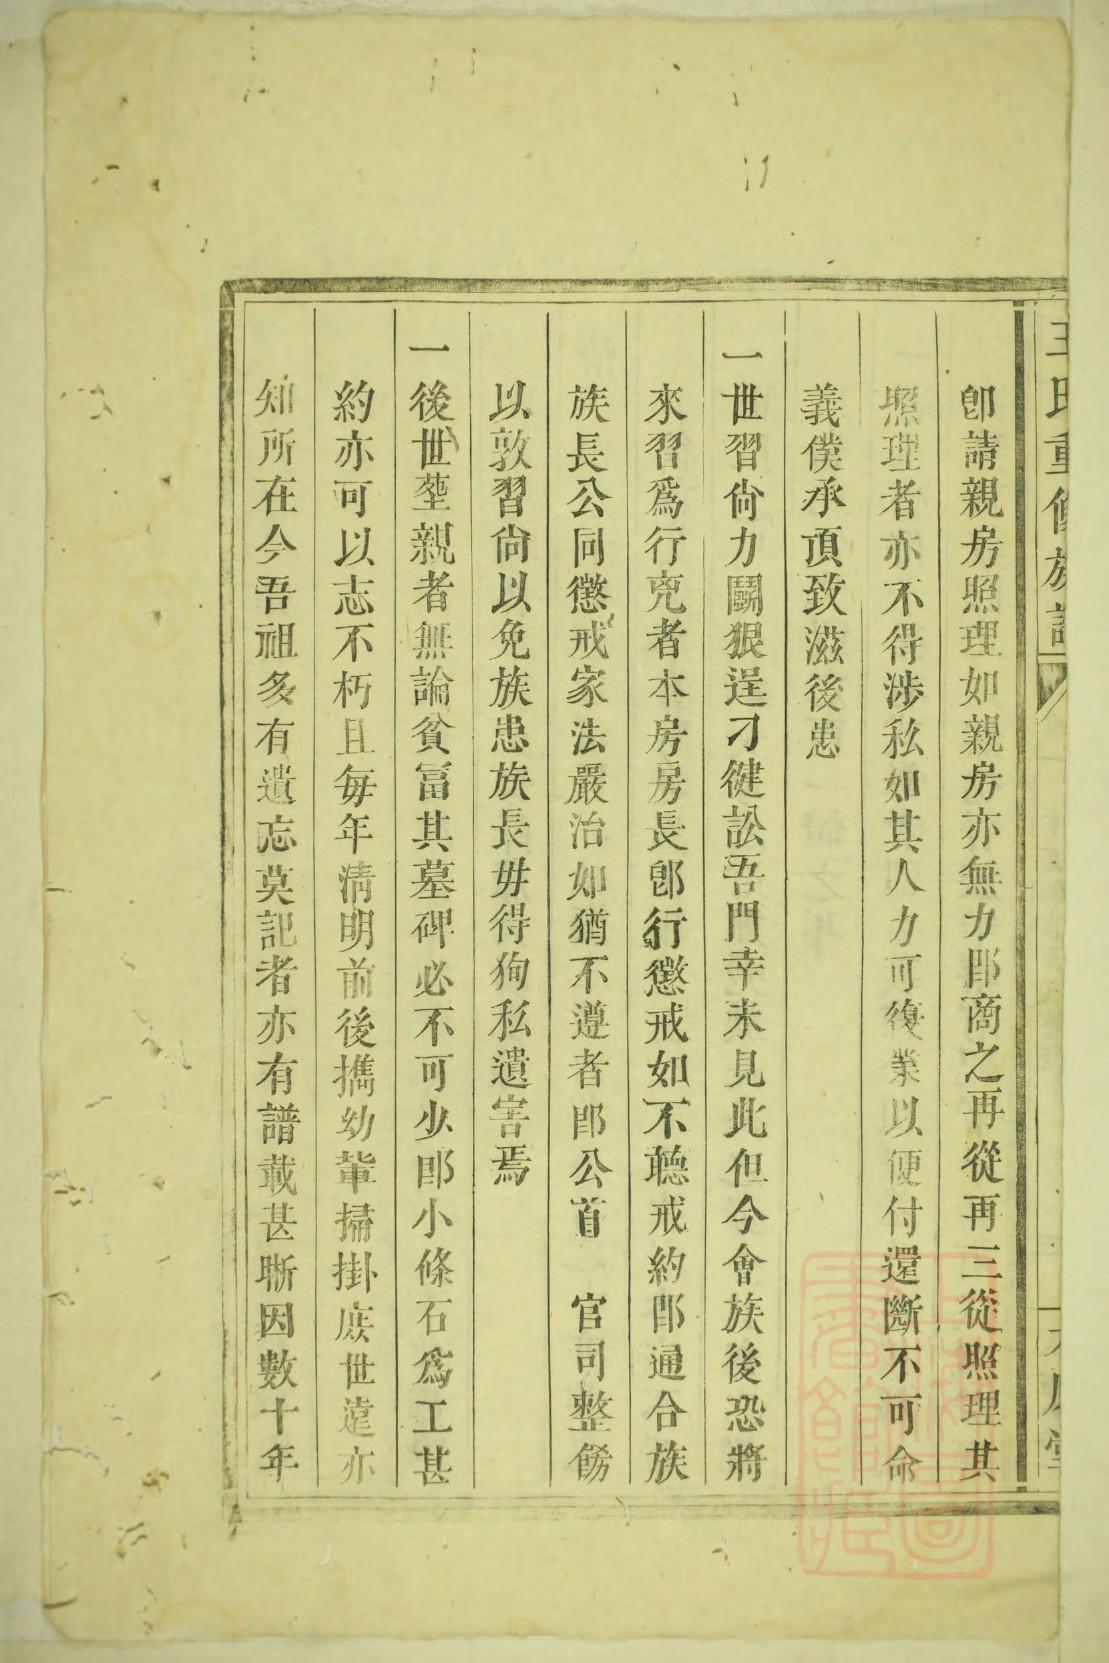 王氏重修族譜
卽請親房照理如親房亦無力卽商之再從再三從照理其
照理者亦不得涉私如其人力可復業以便付還斷不可命
義僕承頂致滋後患
一世習尙力鬬狠逞刁健訟吾門幸未見此但今會族後恐將
來習爲行兇者本房房長卽行懲戒如不聽戒約卽通合族
族長公同懲戒家法嚴治如猶不遵者卽公首 官司整飭
以敦習尙以免族患族長毋得狥私遺害焉
一後世塟親者無論貧冨其墓碑必不可少卽小條石爲工甚
約亦可以志不朽且每年淸明前後携幼軰掃掛庶世遠亦
知所在今吾祖多有遺忘莫記者亦有譜載甚晰因數十年